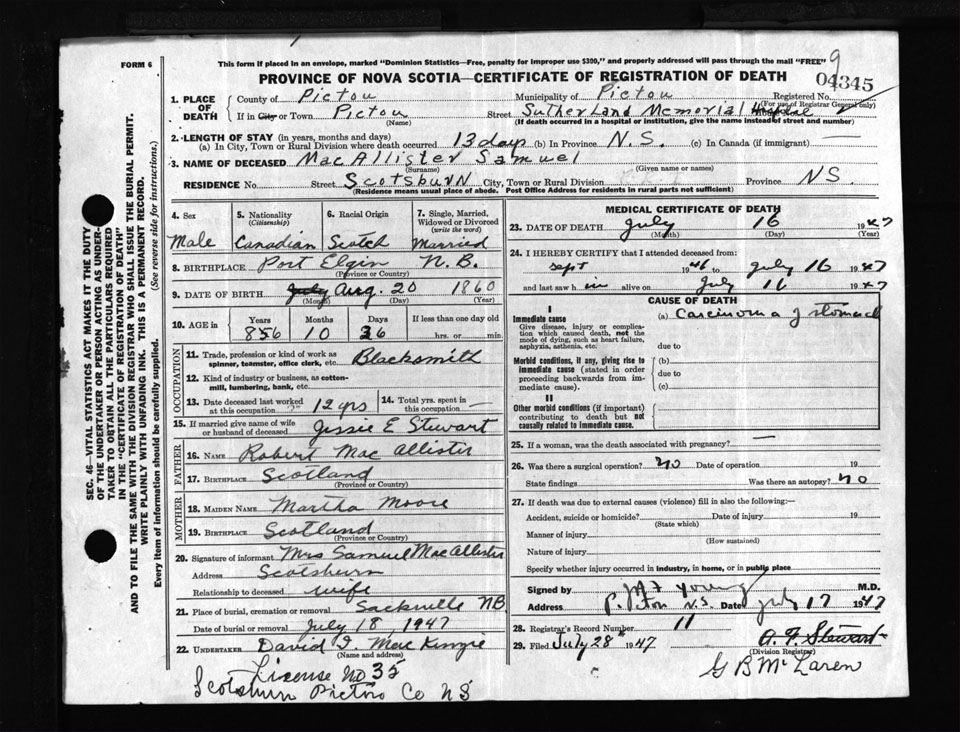 9
FORM 6
This form if placed in an envelope, marked "Dominion Statistics—Free, penalty for improper use $300," and properly addressed will pass through the mail "FREE"
PROVINCE OF NOVA SCOTIA—CERTIFICATE OF REGISTRATION OF DEATH
04345
SEC. 46—VITAL STATISTICS ACT MAKES IT THE DUTY
OF THE UNDERTAKER OR PERSON ACTING AS UNDER-
TAKER TO OBTAIN ALL THE PARTICULARS REQUIRED
IN THE "CERTIFICATE OF REGISTRATION OF DEATH"
AND TO FILE THE SAME WITH THE DIVISION REGISTRAR WHO SHALL ISSUE THE BURIAL PERMIT.
WRITE PLAINLY WITH UNFADING INK. THIS IS A PERMANENT RECORD.
Every item of information should be carefully supplied. (See reverse side for instructions.)
1. PLACE OF DEATH
County of Pictou Municipality of Pictou Registered No.
(For use of Registrar General only)
If in City or Town Pictou Street Sutherland Memorial Hospital
(Name) (If death occurred in a hospital or institution, give the name instead of street and number)
2. LENGTH OF STAY (in years, months and days)
(a) In City, Town or Rural Division where death occurred 13 days (b) In Province N.S. (c) In Canada (if immigrant) —
3. NAME OF DECEASED MacAllister Samuel
(Surname) (Given name or names)
RESIDENCE No. Street Scotsburn City, Town or Rural Division Province NS.
(Residence means usual place of abode. Post Office Address for residents in rural parts not sufficient)
4. Sex
Male
5. Nationality
(Citizenship)
Canadian
6. Racial Origin
Scotch
7. Single, Married, Widowed or Divorced
(write the word)
Married
8. BIRTHPLACE Port Elgin N.B.
(Province or Country)
9. DATE OF BIRTH July Aug. 20 1860
(Month) (Day) (Year)
10. AGE in
Years Months Days If less than one day old
856 10 26 hrs. or min.
OCCUPATION
11. Trade, profession or kind of work as
spinner, teamster, office clerk, etc. Blacksmith
12. Kind of industry or business, as cotton-
mill, lumbering, bank, etc.
13. Date deceased last worked
at this occupation 12 yrs
14. Total yrs. spent in
this occupation —
15. If married give name of wife
or husband of deceased Jessie E Stewart
FATHER
16. NAME Robert MacAllister
17. BIRTHPLACE Scotland
(Province or Country)
MOTHER
18. MAIDEN NAME Martha Moore
19. BIRTHPLACE Scotland
(Province or Country)
20. Signature of informant Mrs Samuel MacAllister
Address Scotsburn
Relationship to deceased wife
21. Place of burial, cremation or removal Sackville NB
Date of burial or removal July 18, 1947
22. UNDERTAKER David I. MacKenzie
(Name and address)
License No 35
Scotsburn Pictou Co NS
MEDICAL CERTIFICATE OF DEATH
23. DATE OF DEATH July 16 1947
(Month) (Day) (Year)
24. I HEREBY CERTIFY that I attended deceased from:
Sept 1946 to July 16 1947
and last saw him alive on July 16 1947
CAUSE OF DEATH
I
Immediate cause
Give disease, injury or complica-
tion which caused death, not the
mode of dying, such as heart failure,
asphyxia, asthenia, etc.
(a) Carcinoma of stomach
due to
Morbid conditions, if any, giving rise to
immediate cause (stated in order
proceeding backwards from im-
mediate cause).
(b)
due to
(c)
II
Other morbid conditions (if important)
contributing to death but not
causally related to immediate cause.
25. If a woman, was the death associated with pregnancy? —
26. Was there a surgical operation? no Date of operation 19
State findings Was there an autopsy? no
27. If death was due to external causes (violence) fill in also the following:—
Accident, suicide or homicide? Date of injury 19
(State which)
Manner of injury
(How sustained)
Nature of injury
Specify whether injury occurred in industry, in home, or in public place
Signed by M F Young M.D.
Address Pictou N.S. Date July 17 1947
28. Registrar's Record Number 11
29. Filed July 28th 1947 A. F. Stewart
(Division Registrar)
G B McLaren